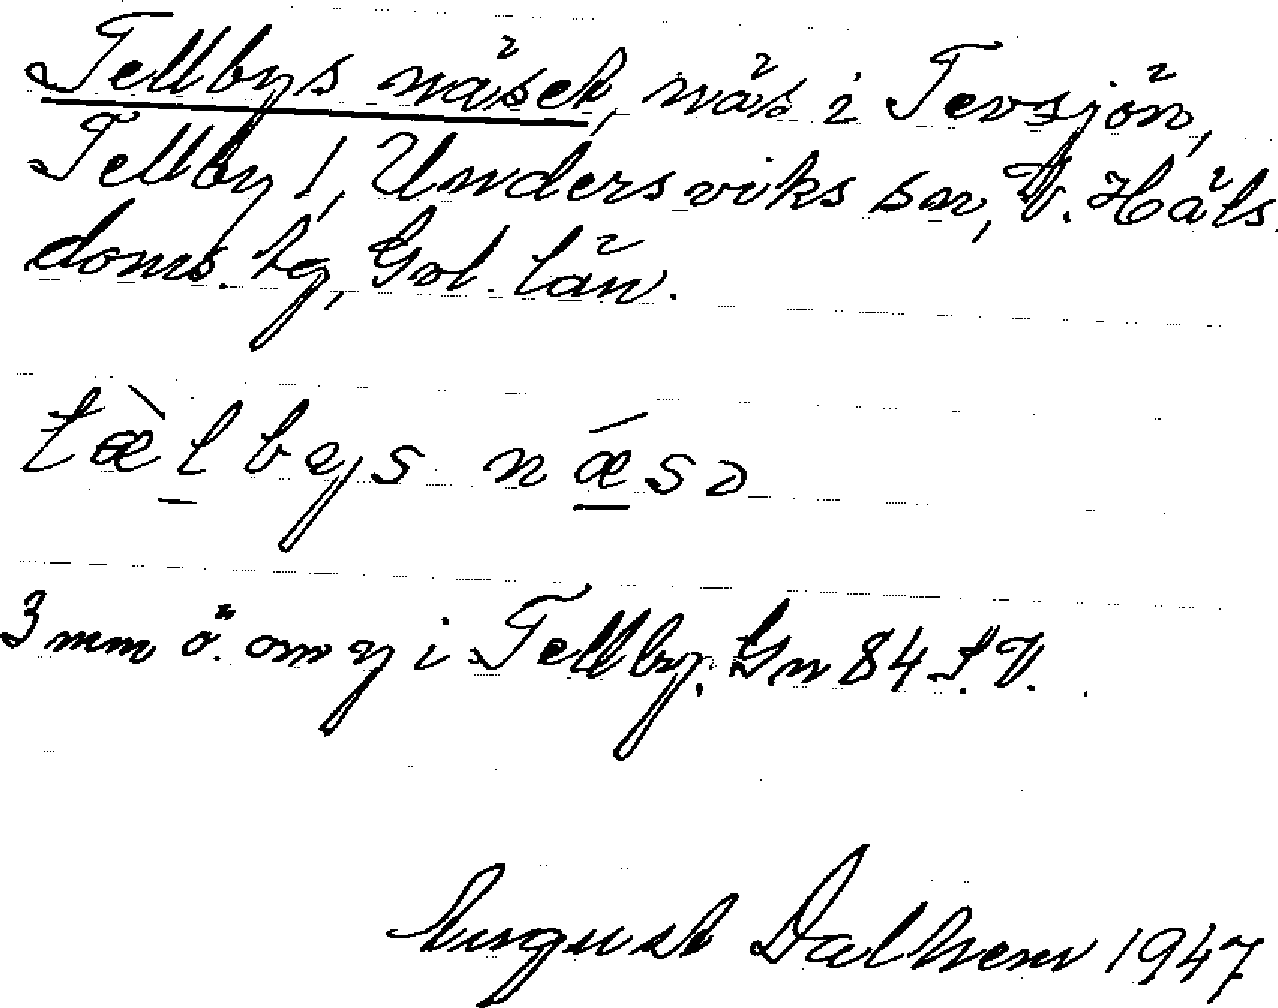 Tellbys näset, näs i Tevsjön,
Tellby 1, Undersviks sn, V. Häls.
doms. lg, Gvl. län.
tæ̀lbys nǽsə
3 mm ö. om y i Tellby. Gn 84 S.V.
August Dalhem 1947